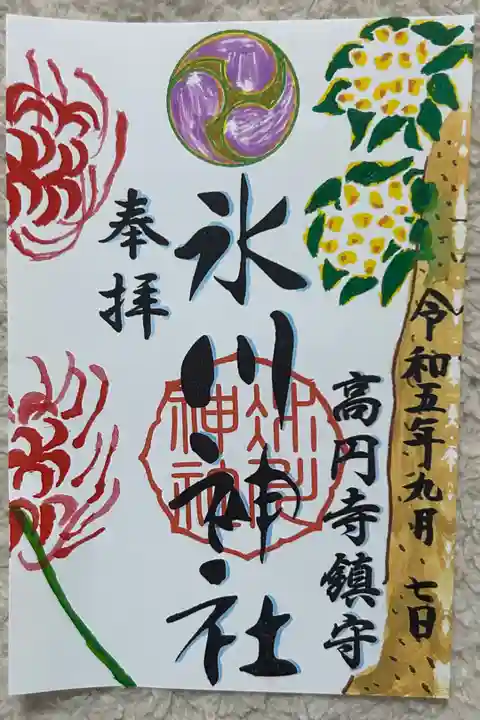 令和五年九月七日
高円寺鎮守
氷川神社
氷川神社
奉拝